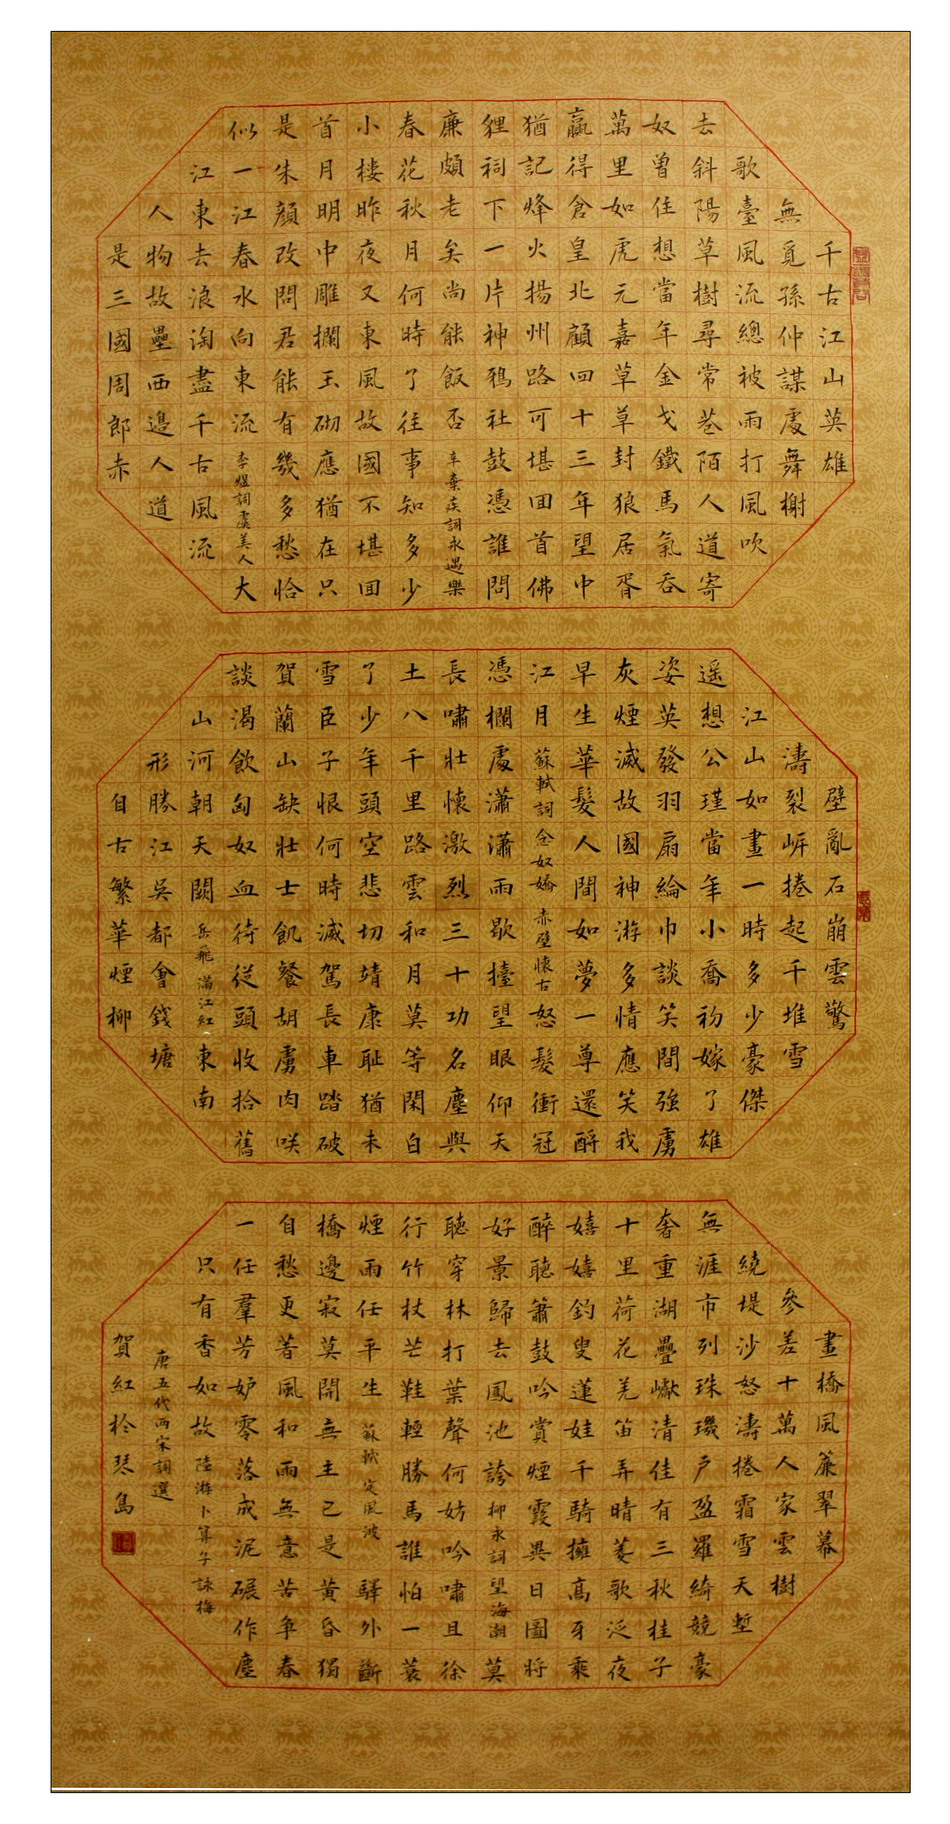 千古江山英雄
無覓孫仲謀處舞榭
歌臺風流總被雨打風吹
去斜陽草樹尋常巷陌人道寄
奴曾住想當年金戈鐵馬氣吞
萬里如虎元嘉草草封狼居胥
贏得倉皇北顧四十三年望中
猶記烽火揚州路可堪回首佛
貍祠下一片神鴉社鼓憑誰問
廉頗老矣尚能飯否 辛棄疾詞永遇樂
春花秋月何時了往事知多少
小樓昨夜又東風故國不堪回
首月明中雕欄玉砌應猶在只
是朱顏改問君能有幾多愁恰
似一江春水向東流 李煜詞虞美人 大
江東去浪淘盡千古風流
人物故壘西邊人道
是三國周郎赤
壁亂石崩雲驚
濤裂岸捲起千堆雪
江山如畫一時多少豪傑
遥想公瑾當年小喬初嫁了雄
姿英發羽扇綸巾談笑間強虜
灰煙滅故國神游多情應笑我
早生華髮人間如夢一尊還酹
江月 蘇軾詞念奴嬌 赤壁懷古 怒髮衝冠
憑欄處瀟瀟雨歇擡望眼仰天
長嘯壯懷激烈三十功名塵與
土八千里路雲和月莫等閑白
了少年頭空悲切靖康恥猶未
雪臣子恨何時滅駕長車踏破
賀蘭山缺壯士飢餐胡虜肉咲
談渴飲匈奴血待從頭收拾舊
山河朝天闕 岳飛 滿江紅 東南
形勝江吳都會錢塘
自古繁華煙柳
畫橋風簾翠幕
參差十萬人家雲樹
繞堤沙怒濤捲霜雪天塹
無涯市列珠璣戶盈羅綺競豪
奢重湖疊巘清佳有三秋桂子
十里荷花羌笛弄晴菱歌泛夜
嬉嬉釣叟蓮娃千騎擁高牙乘
醉聽簫鼓吟賞煙霞異日圖將
好景歸去鳳池誇 柳永詞望海潮 莫
聽穿林打葉聲何妨吟嘯且徐
行竹杖芒鞋輕勝馬誰怕一蓑
煙雨任平生 蘇軾定風波 驛外斷
橋邊寂莫開無主已是黃昏獨
自愁更著風和雨無意苦爭春
一任羣芳妒零落成泥碾作塵
只有香如故 陸游卜算子詠梅
唐五代兩宋詞選
賀紅於琴島